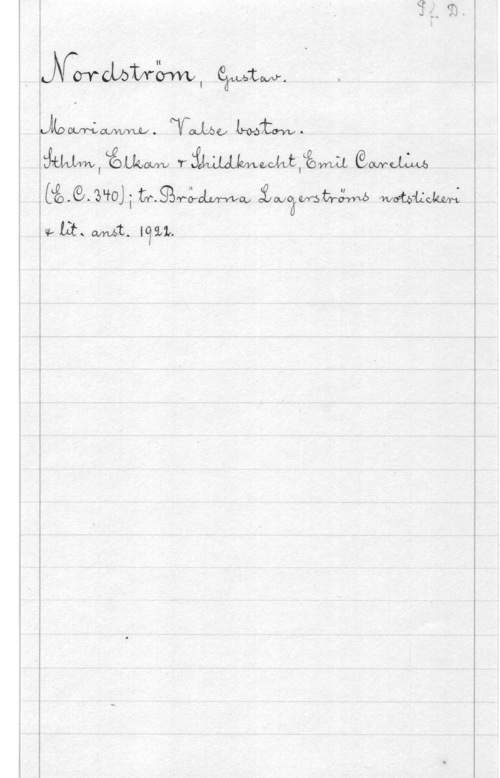 Pf D.
Nordström, Gustav.
Marianne. Valse boston.
Sthlm, Elkan & Schildknecht, Emil Carelius
(E.C. 340); tr. Bröderna Lagerströms notstickeri
& lit. anst. 1922.